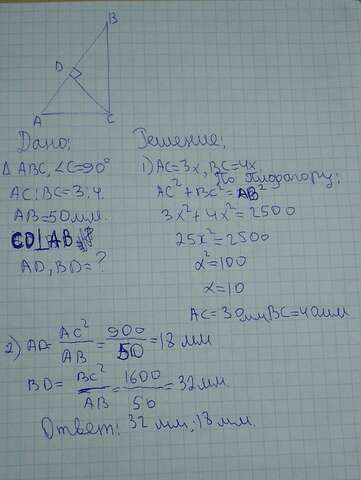 B
D
A
C
Дано:
Δ ABC, ∠C=90°
AC:BC=3:4.
AB=50мм.
CD⊥AB
AD, BD=?
Решение:
1) AC=3x, BC=4x
По Пифагору:
AC²+BC²=AB²
3x²+4x²=2500
25x²=2500
x²=100
x=10
AC=30мм BC=40мм
2) AD= AC²/AB = 900/50 =18 мм
BD= BC²/AB = 1600/50 =32 мм
Ответ: 32 мм; 18 мм.